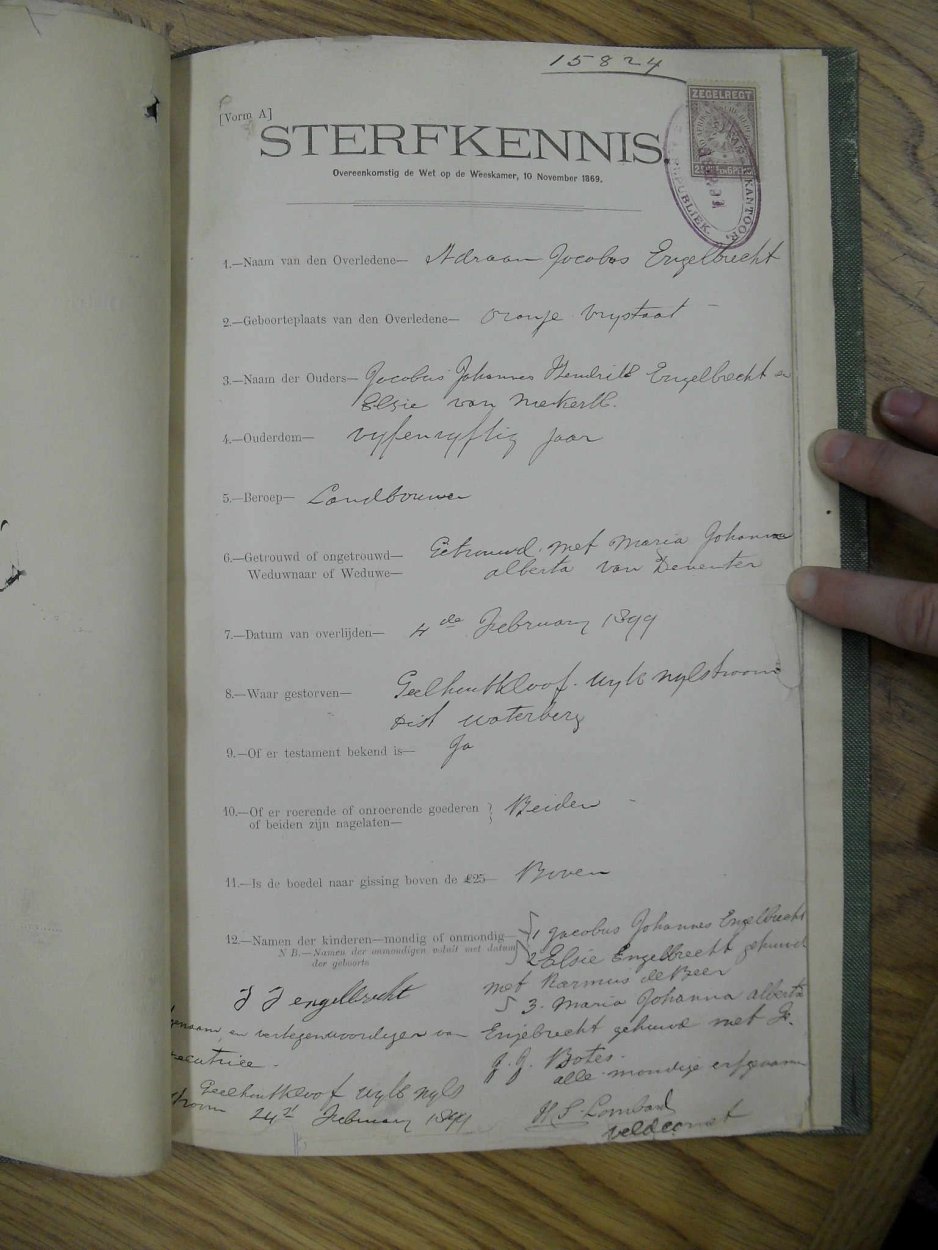 15824
[Vorm A]
ZEGELREGT
STERFKENNIS.
Overeenkomstig de Wet op de Weeskamer, 10 November 1869.
REPUBLIEK. KANTOOR,
1.—Naam van den Overledene— Adriaan Jacobus Engelbrecht
2.—Geboorteplaats van den Overledene— Oranje Vrystaat
3.—Naam der Ouders— Jacobus Johannes Hendrik Engelbrecht en
Elsie van Niekerk.
4.—Ouderdom— vyfenvyftig jaar
5.—Beroep— Landbouwer
6.—Getrouwd of ongetrouwd— Getrouwd. met Maria Johanna
Weduwnaar of Weduwe— alberta van Deventer
7.—Datum van overlijden— 4de February 1899
8.—Waar gestorven— Geelhoutkloof. wyk nylstroom
Dist waterberg
9.—Of er testament bekend is— Ja
10.—Of er roerende of onroerende goederen } Beiden
of beiden zijn nagelaten—
11.—Is de boedel naar gissing boven de £25— Boven
12.—Namen der kinderen—mondig of onmondig— 1 Jacobus Johannes Engelbrecht
N B.—Namen der onmondigen voluit met datum 2 Elsie Engelbrecht gehuwd
der geboorte met Rasmus de Beer
J J engelbrecht 3. Maria Johanna alberta
en vertegenwoordiger van Engelbrecht gehuwd met G.
J. J. Botes.
alle mondige erfgenamen
Geelhoutkloof wyk nyls
24st February 1899 H S Lombard
veldcornet